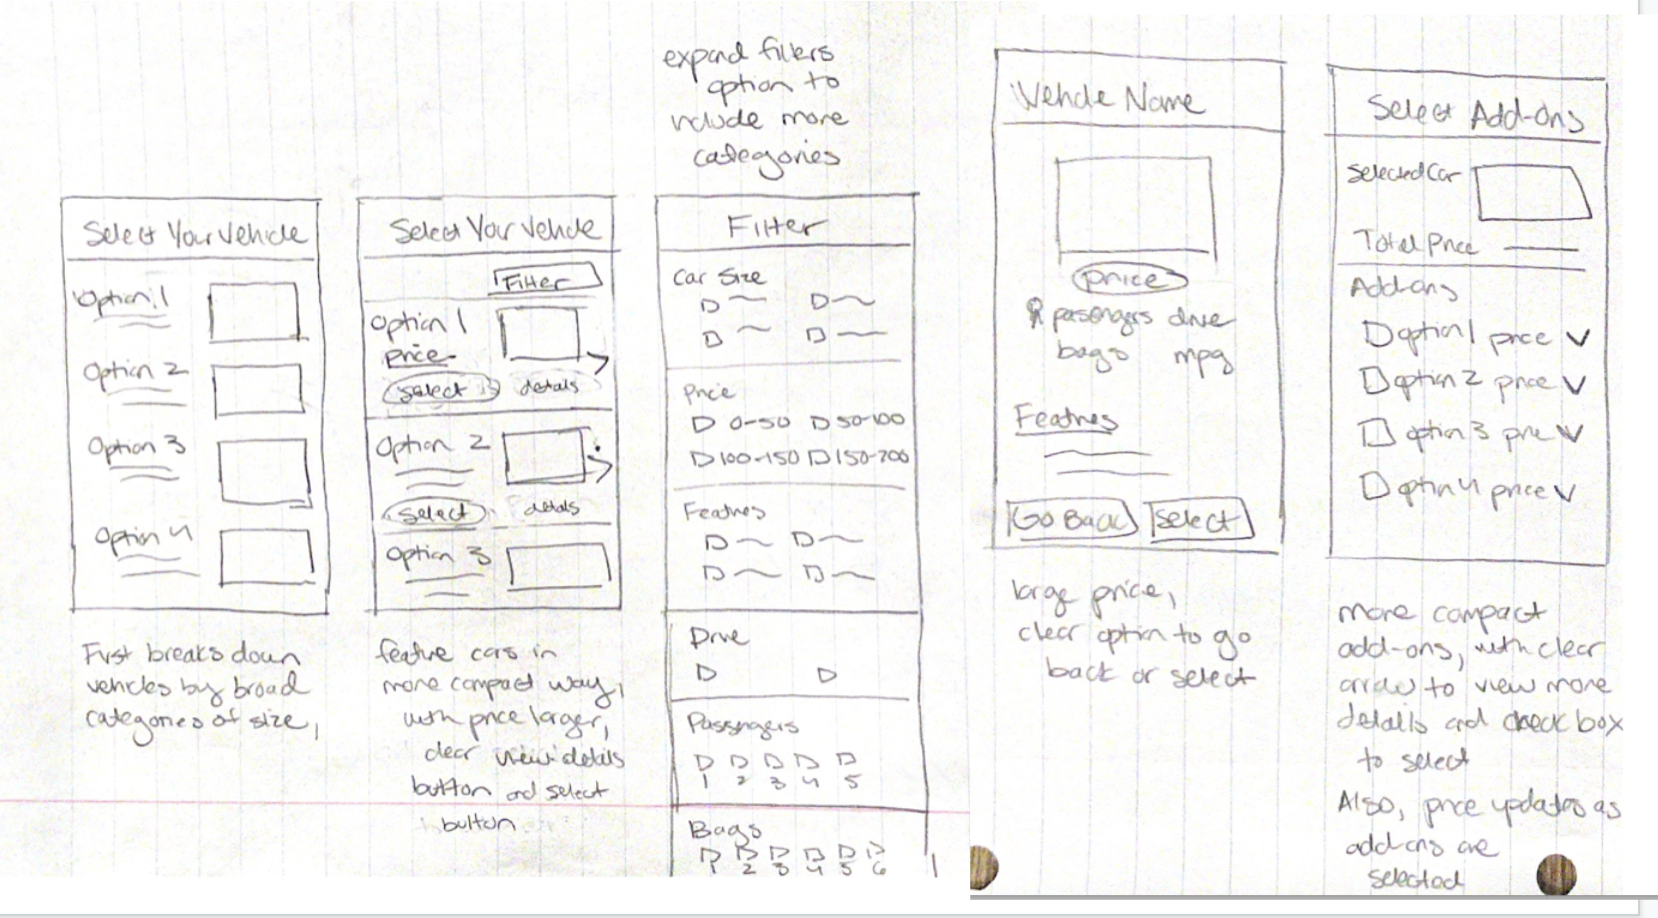 expand filters
option to
include more
categories
Select Your Vehicle
Option 1
Option 2
Option 3
Option 4
First breaks down
vehicles by broad
categories of size,
Select Your Vehicle
Filter
Option 1
price
select
details
Option 2
select
details
Option 3
feature cars in
more compact way,
with price larger,
clear view details
button and select
button
Filter
Car Size
Price
0-50 50-100
100-150 150-200
Features
Drive
Passengers
1 2 3 4 5
Bags
1 2 3 4 5 6
Vehicle Name
price
passengers drive
bags mpg
Features
Go Back Select
large price,
clear option to go
back or select
Select Add-Ons
Selected Car
Total Price
Add-ons
option 1 price
option 2 price
option 3 price
option 4 price
more compact
add-ons, with clear
arrow to view more
details and check box
to select
Also, price updates as
add-ons are
selected